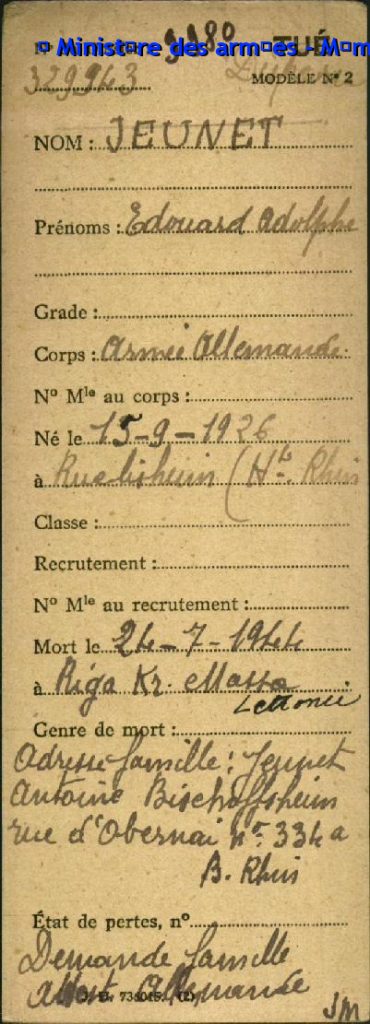 ¤ Minist¤re des arm¤es - M¤m
9980 TUÉ
329943
MODÈLE N° 2
NOM : JEUNET
Prénoms : Edouard Adolphe
Grade :
Corps : Armée Allemande
N° Mle au corps :
Né le 15-9-1926
à Ruelisheim (Ht Rhin
Classe :
Recrutement :
N° Mle au recrutement :
Mort le 24-7-1944
à Riga Kr.
Lettonie
Genre de mort :
Adresse famille : Jeunet
Antoine Bischoffsheim
rue d'Obernai n° 334 a
B. Rhin
État de pertes, n°
Demande famille
Allemande
JM